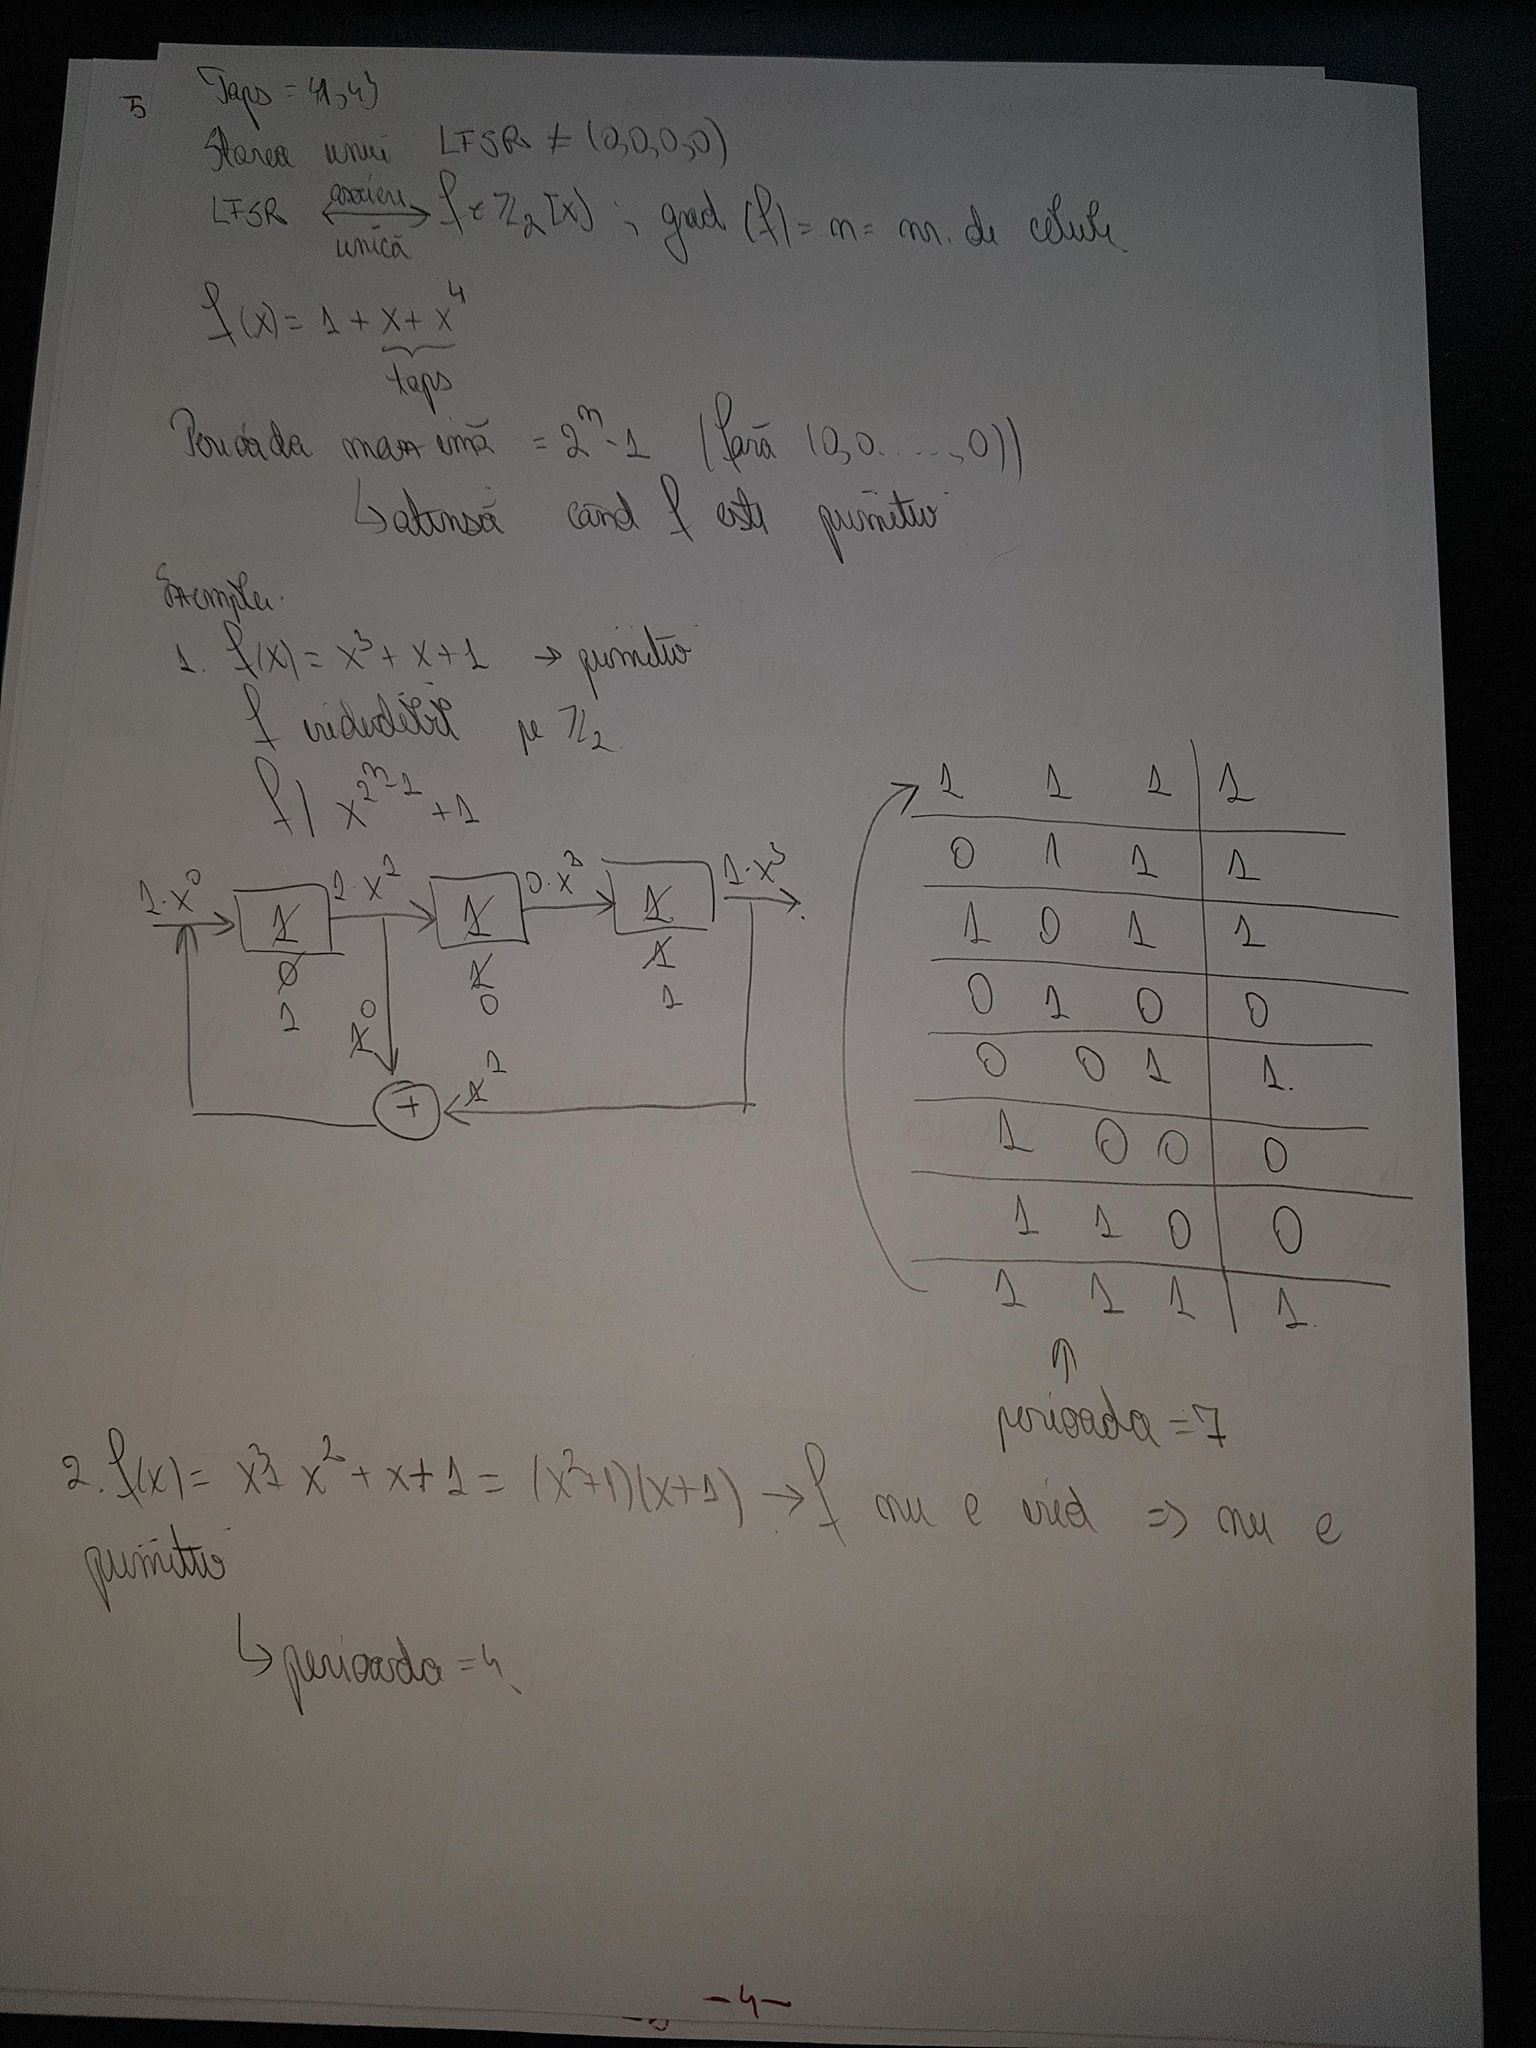 5
Taps = {1,4}
Starea unui LFSR ≠ (0,0,0,0)
LFSR ⟷ f ∈ ℤ₂[x] ; grad (f) = n = nr. de celule.
asociere
unică
f(x) = 1 + x + x⁴
taps
Perioada maximă = 2ⁿ-1 (fără (0,0....,0))
↳ atinsă când f este primitiv
Exemple.
1. f(x) = x³ + x + 1 → primitiv
f ireductibil pe ℤ₂.
f | x^(2ⁿ-1) + 1
1·x⁰ 1 1·x¹ 1 0·x² 1 1·x³
0 1 1
1 0 1
1 0
+ 1
1 1 1 | 1
0 1 1 | 1
1 0 1 | 1
0 1 0 | 0
0 0 1 | 1.
1 0 0 | 0
1 1 0 | 0
1 1 1 | 1.
↑
perioada = 7
2. f(x) = x³ + x² + x + 1 = (x²+1)(x+1) → f nu e ired ⇒ nu e
primitiv
↳ perioada = 4
-4-